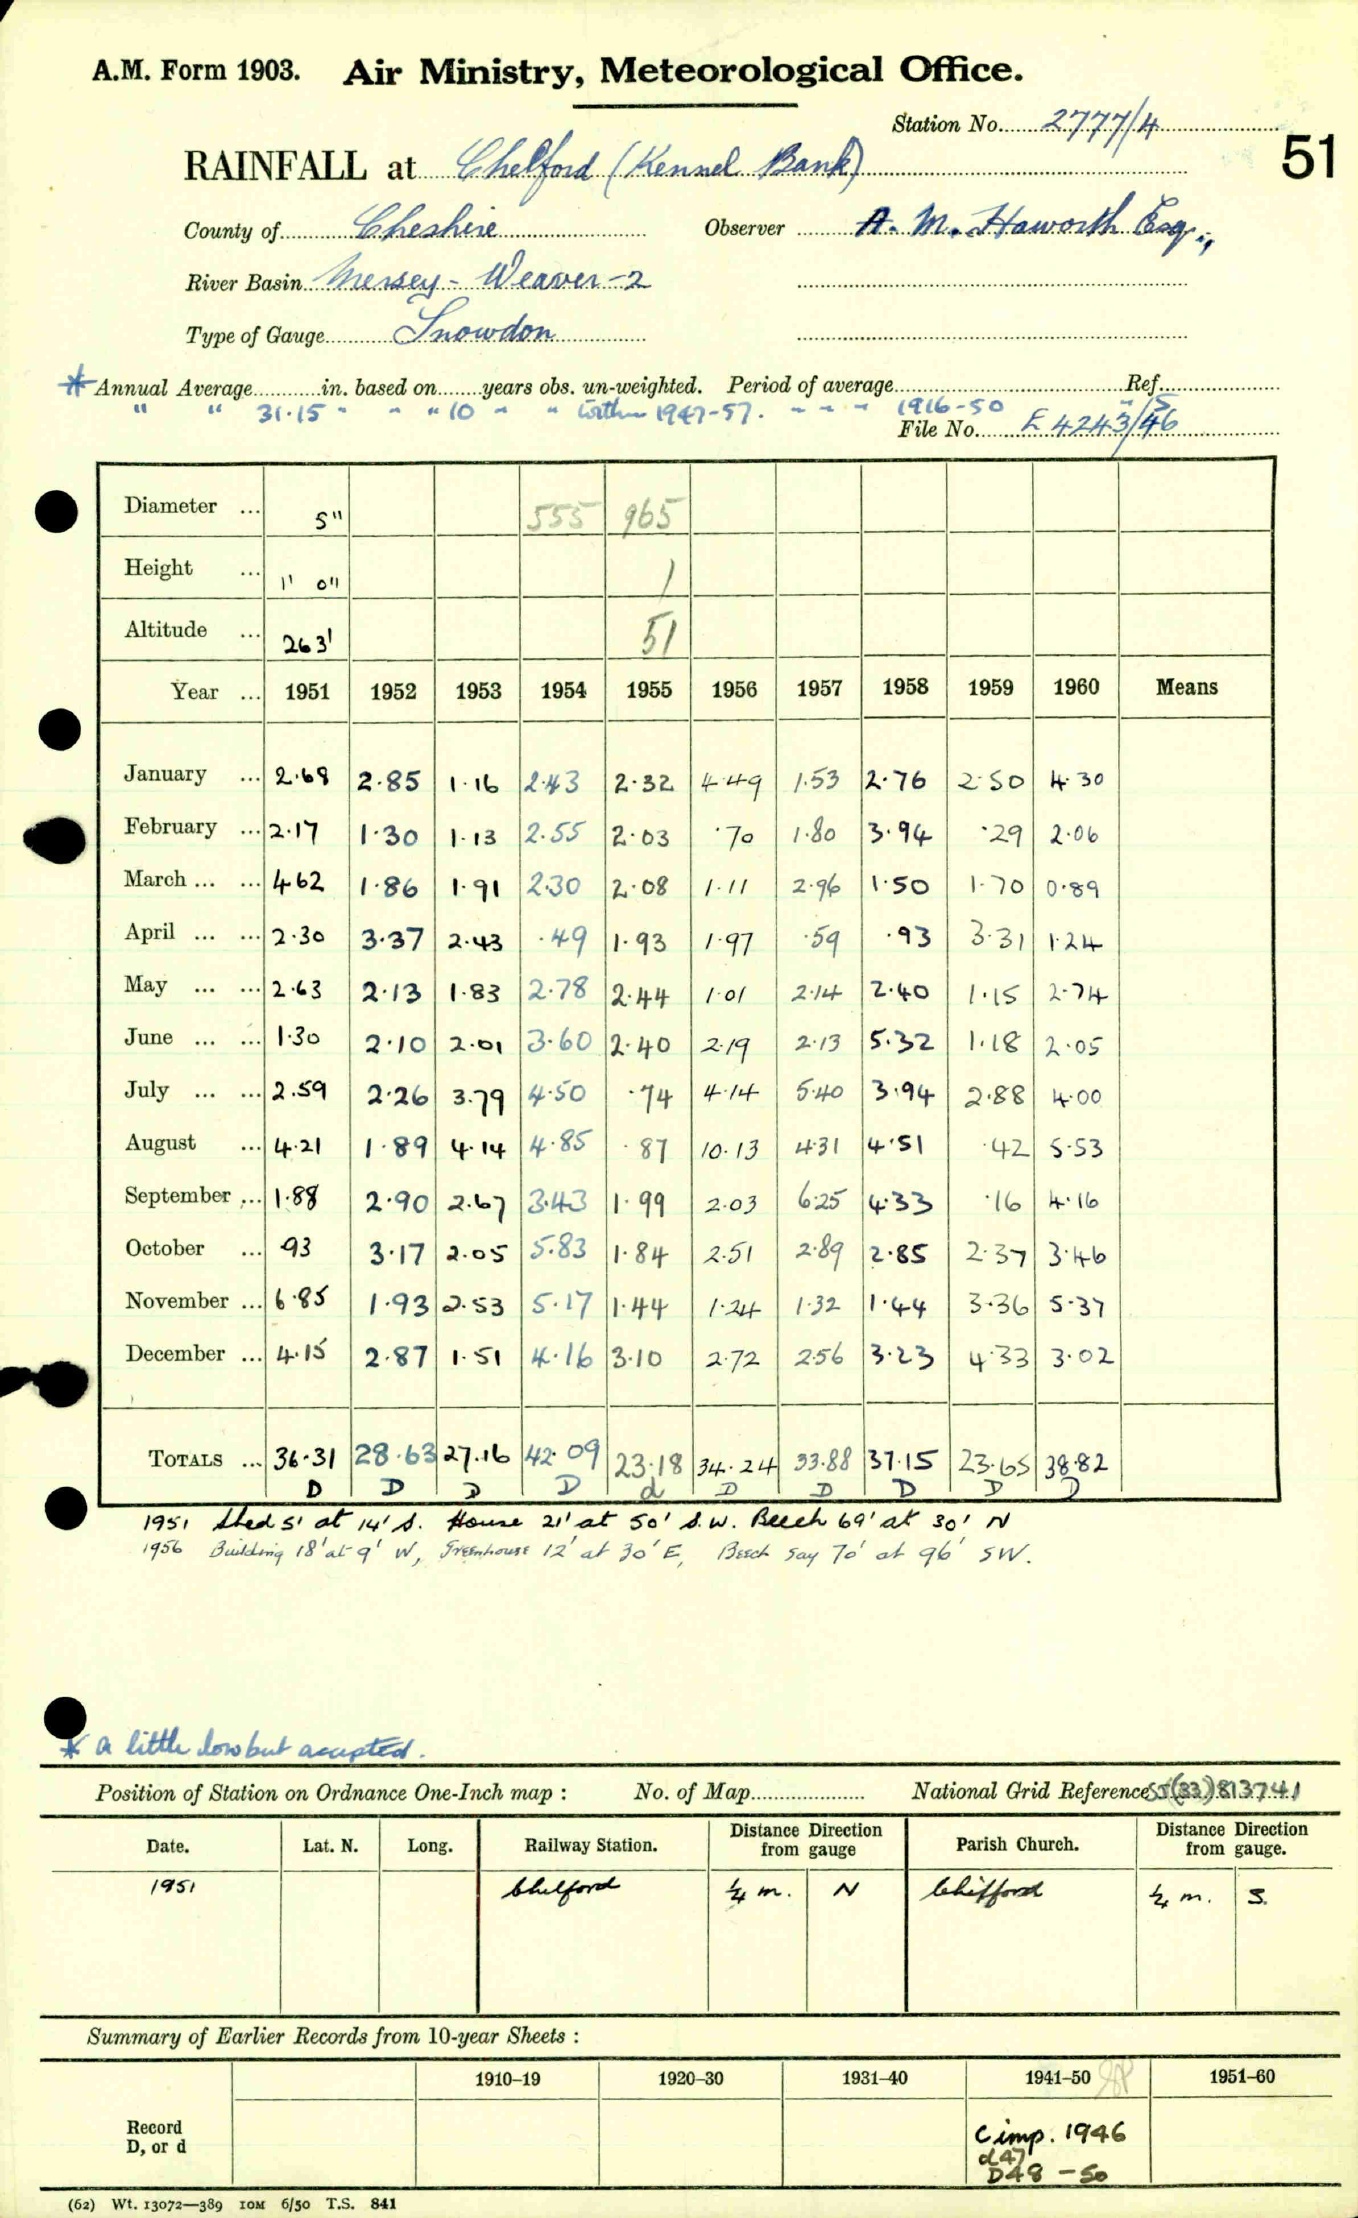 A.M. Form 1903. Air Ministry, Meteorological Office.
Station No. 2777/4
51
RAINFALL at Chelford (Kennel Bank)
County of Cheshire Observer A. M. Haworth Esq.,
River Basin Mersey - Weaver - 2
Type of Gauge Snowdon
* Annual Average in. based on years obs. un-weighted. Period of average Ref.
" " 31·15 " " " 10 " " within 1947-57. " " " 1916-50
File No. E 4243/46
Diameter ... 5" 555 965
Height ... 1' 0" 1
Altitude ... 263' 51
Year ... 1951 1952 1953 1954 1955 1956 1957 1958 1959 1960 Means
January ... 2·68 2·85 1·16 2·43 2·32 4·49 1·53 2·76 2·50 4·30
February ... 2·17 1·30 1·13 2·55 2·03 ·70 1·80 3·94 ·29 2·06
March ... ... 4·62 1·86 1·91 2·30 2·08 1·11 2·96 1·50 1·70 0·89
April ... ... 2·30 3·37 2·43 ·49 1·93 1·97 ·59 ·93 3·31 1·24
May ... ... 2·63 2·13 1·83 2·78 2·44 1·01 2·14 2·40 1·15 2·74
June ... ... 1·30 2·10 2·01 3·60 2·40 2·19 2·13 5·32 1·18 2·05
July ... ... 2·59 2·26 3·79 4·50 ·74 4·14 5·40 3·94 2·88 4·00
August ... 4·21 1·89 4·14 4·85 ·87 10·13 4·31 4·51 ·42 5·53
September ... 1·88 2·90 2·67 3·43 1·99 2·03 6·25 4·33 ·16 4·16
October ... ·93 3·17 2·05 5·83 1·84 2·51 2·89 2·85 2·37 3·46
November ... 6·85 1·93 2·53 5·17 1·44 1·24 1·32 1·44 3·36 5·37
December ... 4·15 2·87 1·51 4·16 3·10 2·72 2·56 3·23 4·33 3·02
TOTALS ... 36·31 28·63 27·16 42·09 23·18 34·24 33·88 37·15 23·65 38·82
D D D D d D D D D D
1951 Shed 5' at 14' S. House 21' at 50' S.W. Beech 69' at 30' N
1956 Building 18' at 9' W, Greenhouse 12' at 30' E, Beech say 70' at 96' SW.
* a little low but accepted.
Position of Station on Ordnance One-Inch map : No. of Map National Grid Reference SJ(33)813741
Date. Lat. N. Long. Railway Station. Distance from Direction gauge Parish Church. Distance from Direction gauge.
1951 Chelford ¼ m. N Chelford ¼ m. S.
Summary of Earlier Records from 10-year Sheets :
1910–19 1920–30 1931–40 1941–50 1951–60
Record D, or d C imp. 1946
d47
D48 – 50
(62) Wt. 13072—389 10M 6/50 T.S. 841